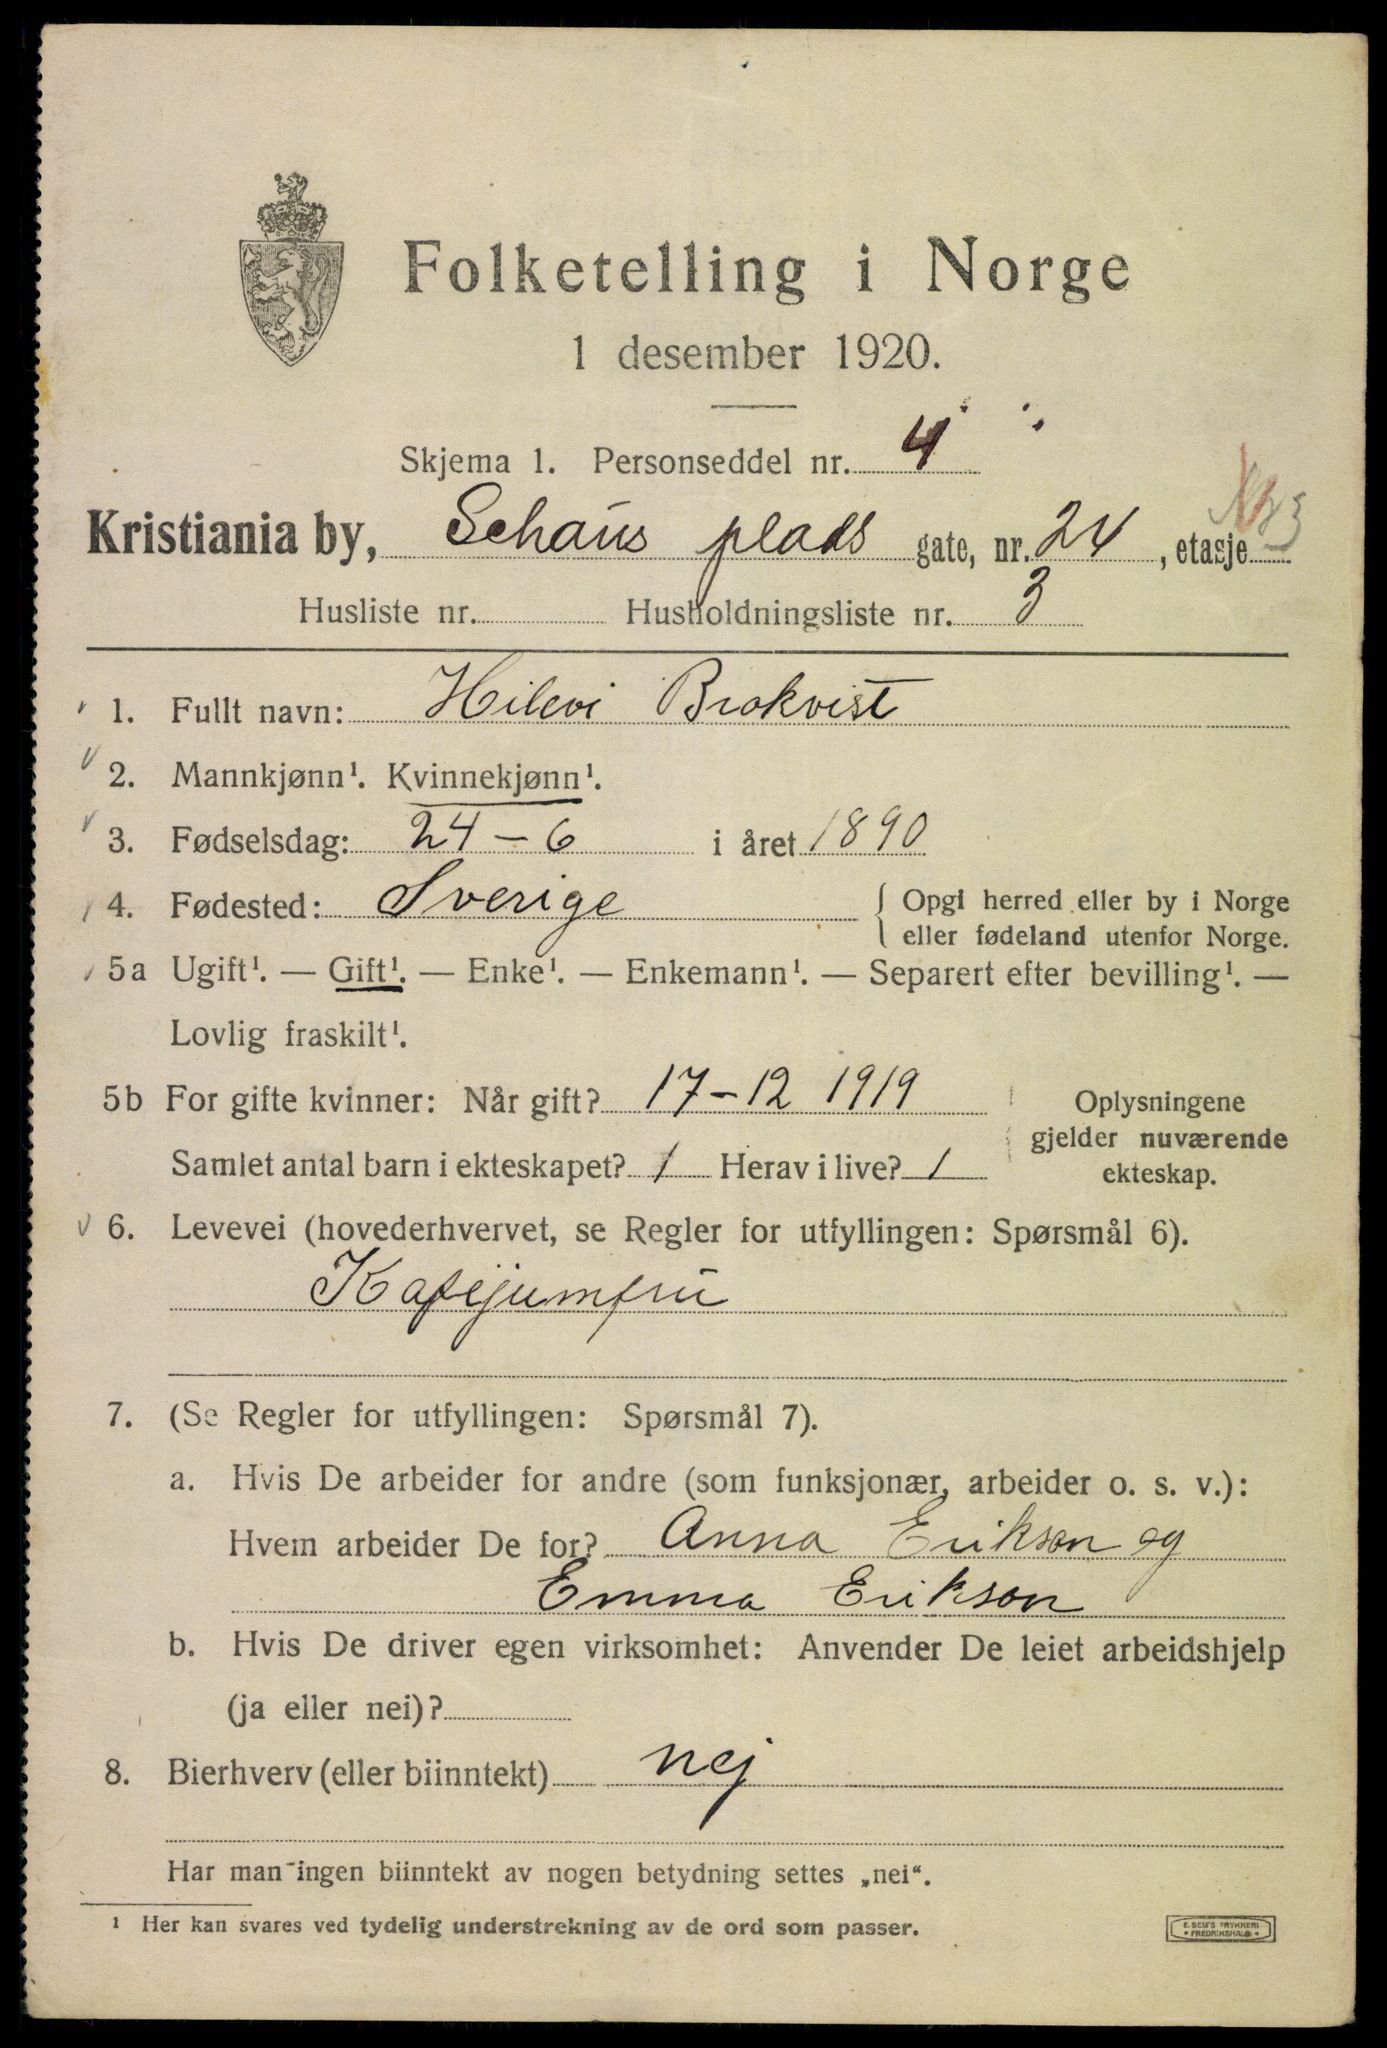 Folketelling i Norge
1 desember 1920.
Skjema 1. Personseddel nr. 4
Kristiania by, Schaus plads gate, nr. 24, etasje
Husliste nr. Husholdningsliste nr. 3
1. Fullt navn: Hilevi Brokvist
2. Mannkjønn¹. Kvinnekjønn¹.
3. Fødselsdag: 24-6 i året 1890
4. Fødested: Sverige { Opgi herred eller by i Norge
eller fødeland utenfor Norge.
5a Ugift¹. — Gift¹. — Enke¹. — Enkemann¹. — Separert efter bevilling¹. —
Lovlig fraskilt¹.
5b For gifte kvinner: Når gift? 17-12 1919 Oplysningene
gjelder nuværende
Samlet antal barn i ekteskapet? 1 Herav i live? 1 ekteskap.
6. Levevei (hovederhvervet, se Regler for utfyllingen: Spørsmål 6).
Kafejumfru
7. (Se Regler for utfyllingen: Spørsmål 7).
a. Hvis De arbeider for andre (som funksjonær, arbeider o. s. v.):
Hvem arbeider De for? Anna Erikson og
Emma Erikson
b. Hvis De driver egen virksomhet: Anvender De leiet arbeidshjelp
(ja eller nei)?
8. Bierhverv (eller biinntekt) nej
Har man ingen biinntekt av nogen betydning settes „nei“.
¹ Her kan svares ved tydelig understrekning av de ord som passer.
E. SEM'S TRYKKERI
FREDRIKSHALD